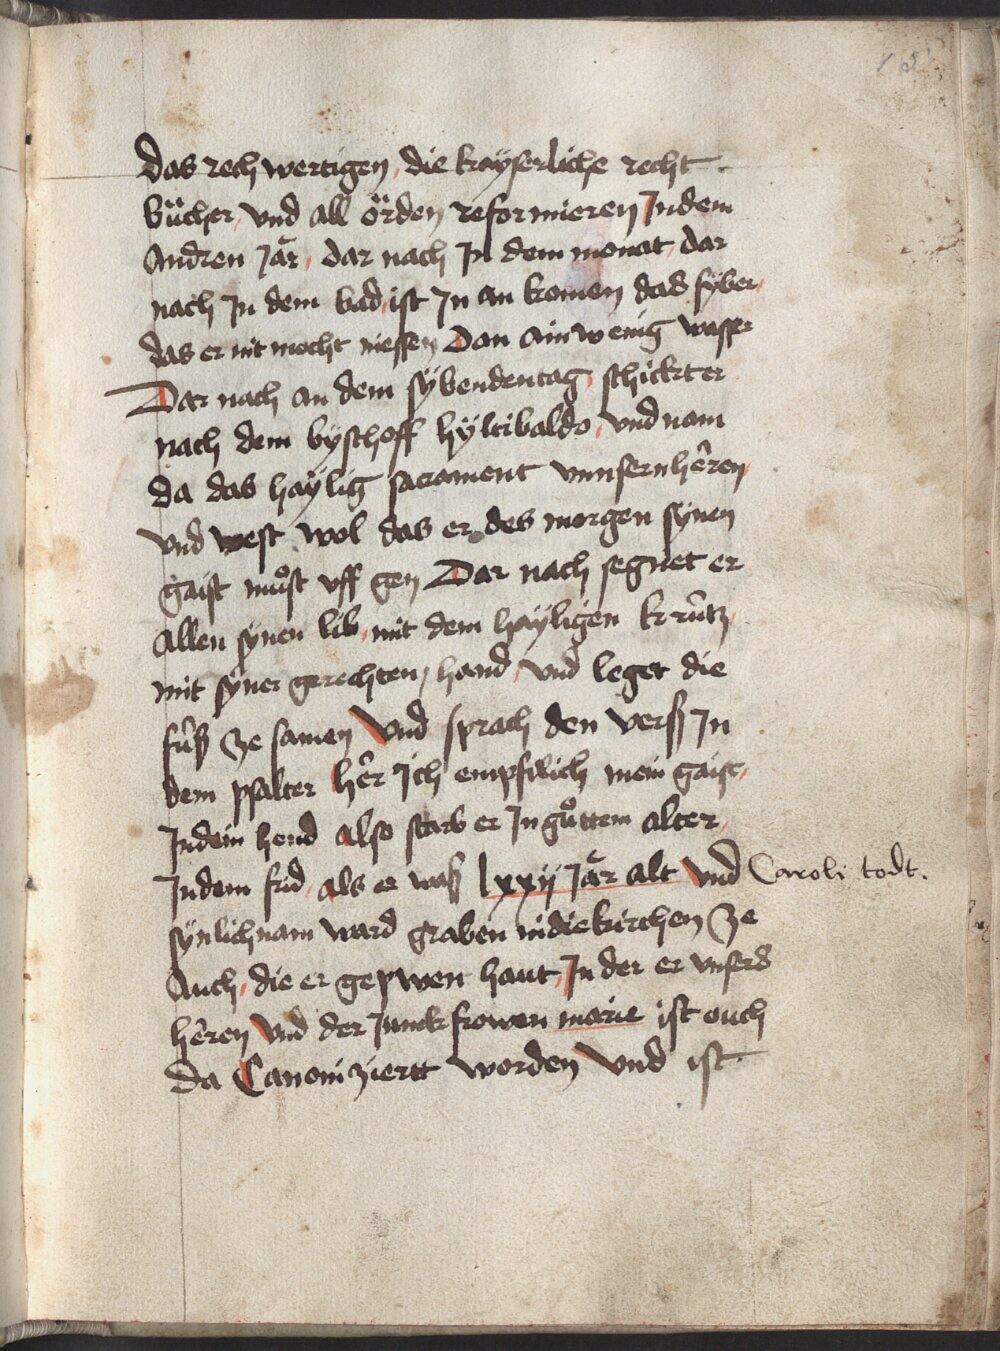 das rech wertigen, die kayserliche recht
bücher, vnd all örden reformieren Jndem
Andren Jăr, dar nach Jn dem monat, dar
nach Jn dem bad, ist Jn an komen das fyber,
das er nit mocht niessen Dan ain wenig wasser
Dar nach an dem sÿbenden tag, schickt er
nach dem byschoff hÿltibaldo, vnd nam
da das haÿlig sacrament vnnsern hêren,
vnd west wol das er des morgen sÿnen
gaist můst vff gen Dar nach segnet er
Allen sÿnen lib, mit dem haÿligen krûtz,
mit sÿner gerechten, hand, vnd leget die
fûß ze samen Vnd sprach den verß Jn
dem psalter hêr Jch empfilich mein gaist,
Jn dein hend also starb er Jn gůttem alter,
Jn dem frid, als er waß lxxij Jăr alt Vnd Caroli todt.
sÿn lichnam ward graben in die kirchen Ze
Auch, die er gepwen haut, Jn der er vnsers
hêren Vnd der Junckfrowen marie ist ouch
da Canoniziertt worden Vnd ist